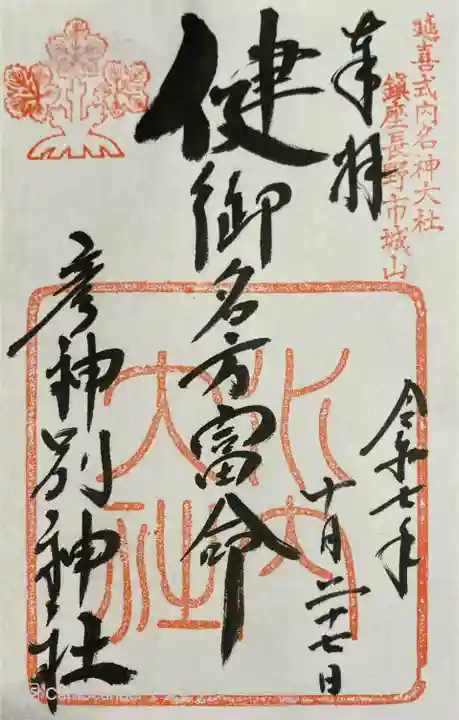 延喜式内名神大社
鎮座長野市城山
奉拝
健御名方富命
彦神別神社
令和七年
十月二十七日
水内
大社